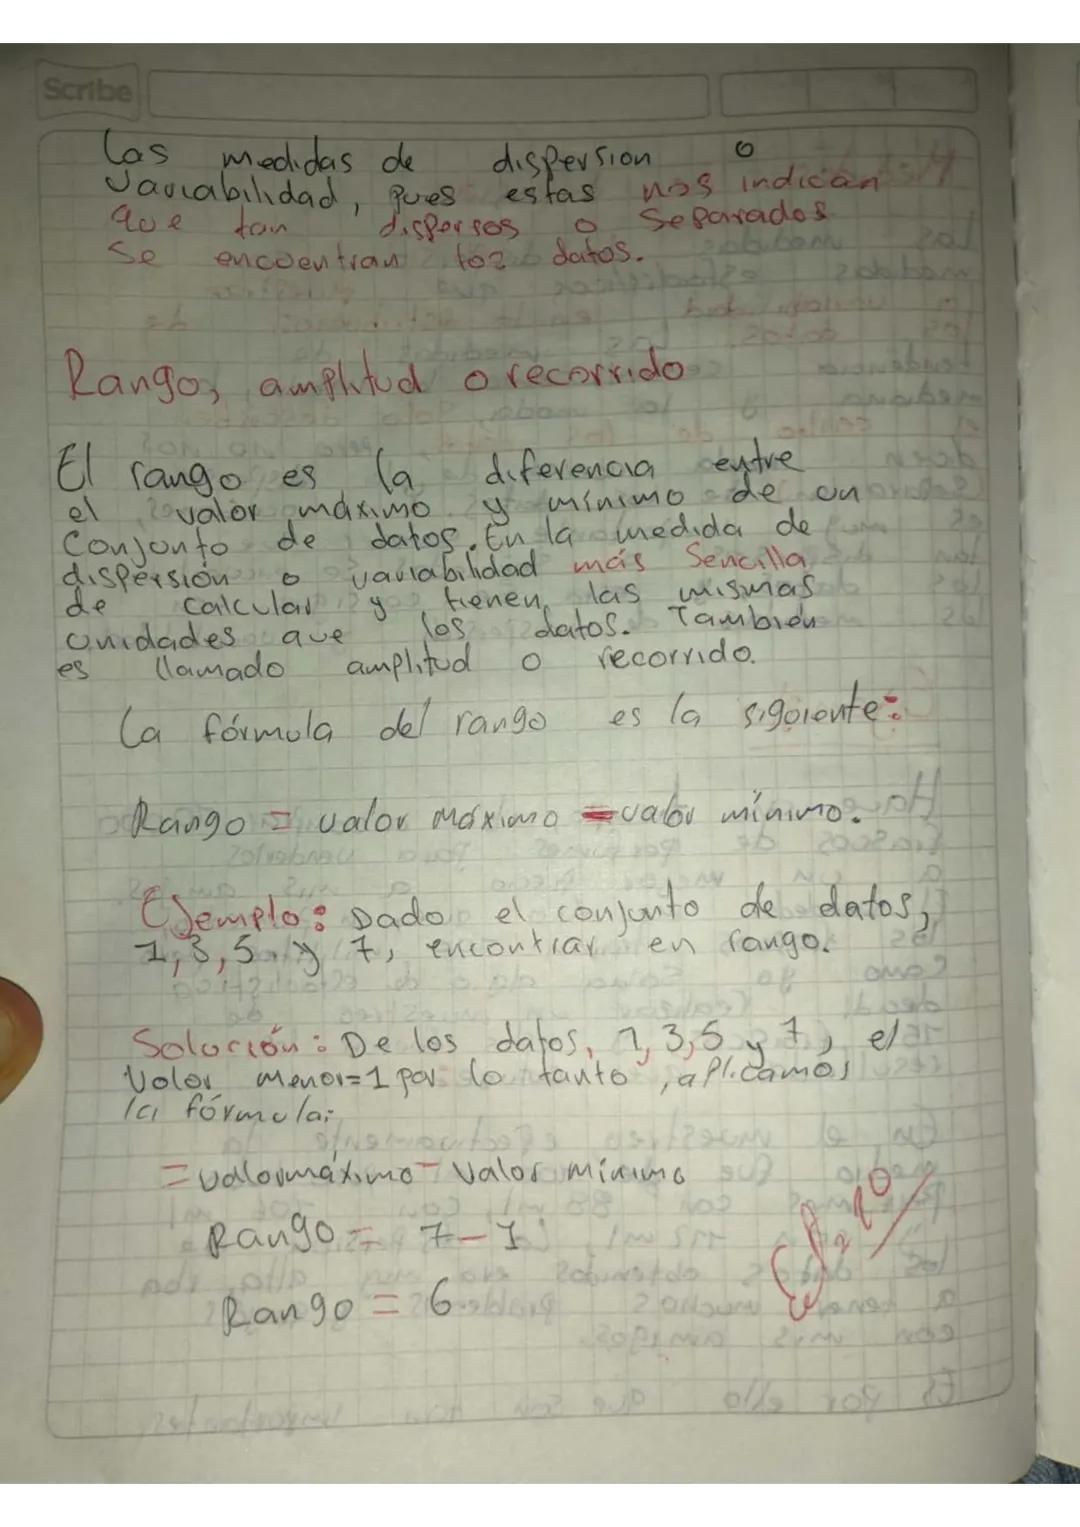 Scribe
Las medidas de dispersion o
variabilidad, pues estas nos indican
que tan dispersos o separados
se encuentran los datos.
Rango, amplitud o recorrido
El rango es la diferencia entre
el valor máximo y mínimo de un
Conjunto de datos. En la medida de
dispersión o variabilidad más Sencilla
de calcular y tienen las mismas
unidades que los datos. También
es llamado amplitud o recorrido.
La fórmula del rango es la siguiente:
Rango = valor máximo - valor mínimo.
Ejemplo: Dado el conjunto de datos,
1, 3, 5 y 7, encontrar en rango.
Solución: De los datos, 1, 3, 5 y 7, el
Valor menor=1 por lo tanto, aplicamos
la fórmula:
= valor máximo - Valor mínimo
Rango = 7-1
Rango = 6